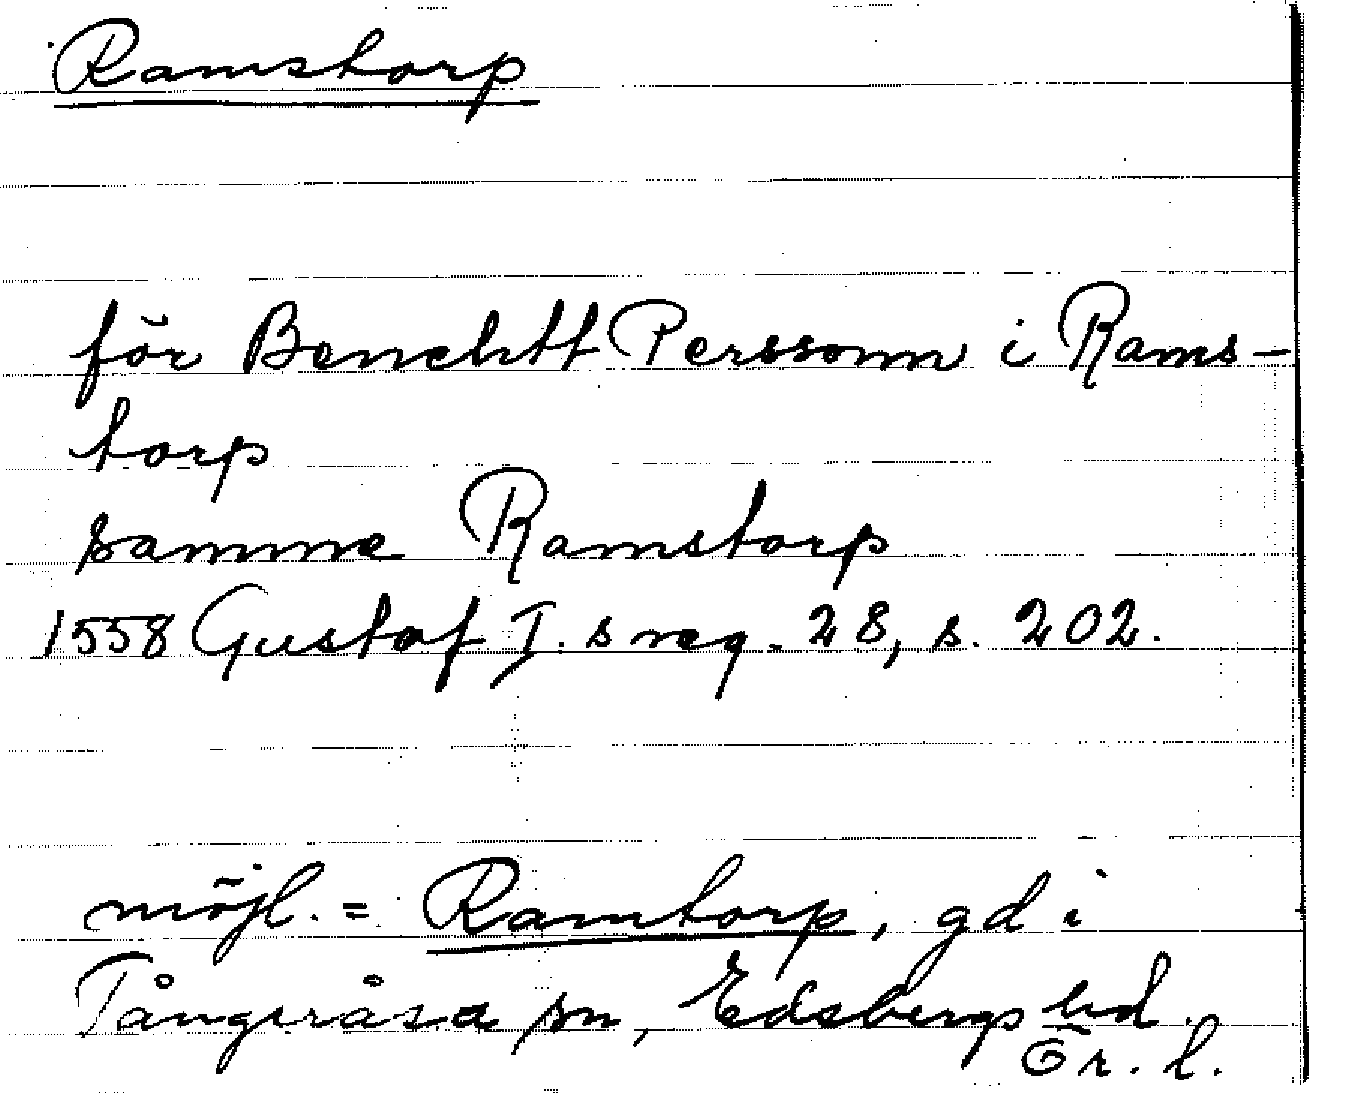 Ramstorp
för Benchtt Perssonn i Rams-
torp
samme Ramstorp
1558 Gustaf I.s reg. 28, s. 202.
möjl. = Ramtorp, gd i
Tångeråsa sn, Edsbergs hd.
Ör. l.